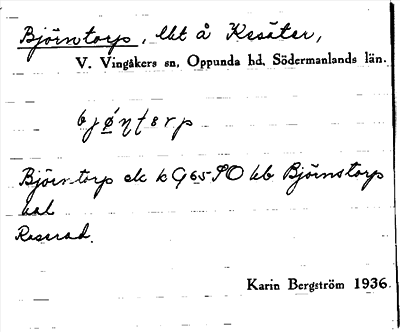 Björntorp, lht å Kesäter,
V. Vingåkers sn, Oppunda hd, Södermanlands län.
Björntorp ek kG65 SO bb Björnstorp
hal
Raserad.
Karin Bergström 1936.